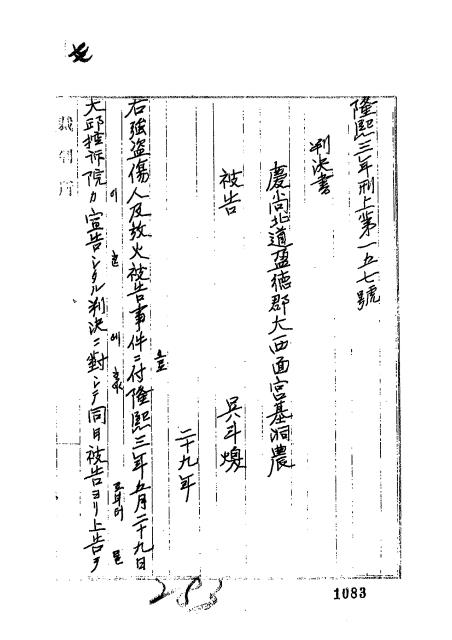 隆熙三年刑上第一五七號
判決書
慶尚北道盈德郡大西面宮基洞農
被告 吳斗煥
二十九年
右强盜傷人及放火被告事件ニ付隆熙三年五月二十九日
大邱控訴院カ宣告シタル判決ニ對シテ同月被告ヨリ上告ヲ
裁判所
1083